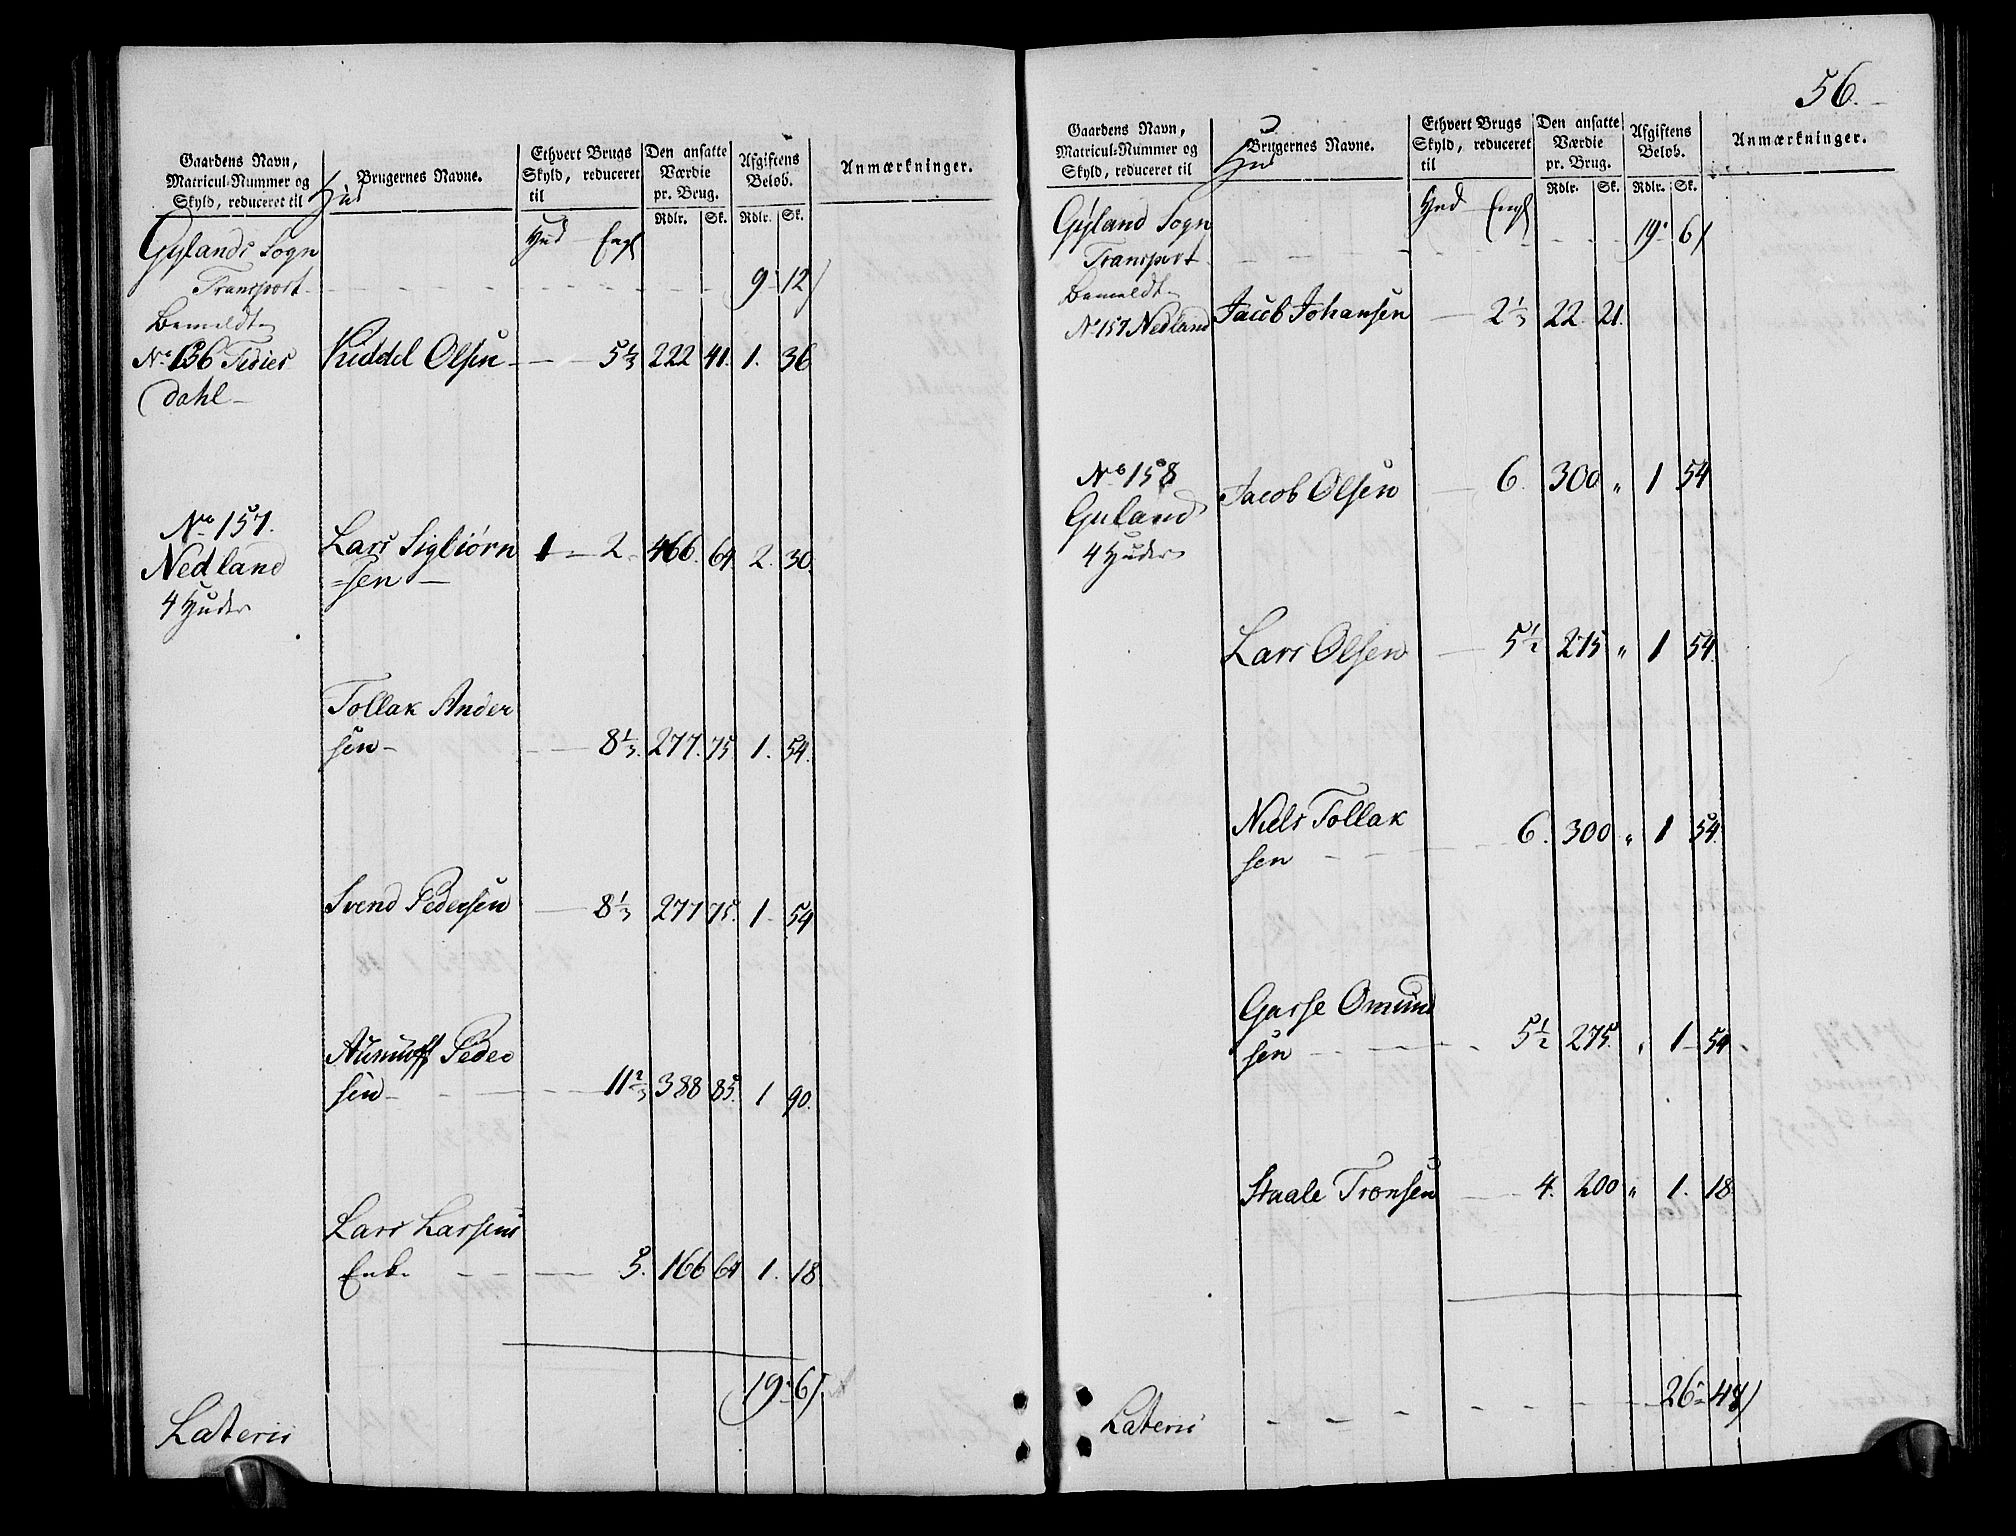 Gaardens Navn,
Matricul-Nummer og
Skyld, reduceret til
Hud
Brugernes Navne.
Ethvert Brugs
Skyld, reduceret
til
Den ansatte
Værdie
pr. Brug.
Afgiftens
Beløb.
Anmærkninger.
Rdlr. Sk. Rdlr. Sk.
Hud Engl
Gylands Sogn
Transport 9 12
Bemeldte
No 156 Tedies Kiddel Olsen 5 1/3 222 41. 1. 36
dahl
No 157.
Nedland Lars Sigbiørn 1 2 466. 64 2. 30.
=sen
4 Huder
Tollak Ander
sen 8 1/3. 277. 75 1. 54.
Svend Pedersen 8 1/3 277 75. 1 54
Aunuff Peder
sen 11 2/3 388 85. 1 90.
Lars Larsens
Enke 5. 166 64 1. 18.
19 6
Lateris
56.
Gaardens Navn,
Matricul-Nummer og
Skyld, reduceret til
Hud
Brugernes Navne.
Ethvert Brugs
Skyld, reduceret
til
Den ansatte
Værdie
pr. Brug.
Afgiftens
Beløb.
Anmærkninger.
Rdlr. Sk. Rdlr. Sk.
Hud Engl
Gyland Sogn
Transport 19 6
Bemeldte
No 157 Nedland Jacob Johansen 2 1/3 22 21.
No 158
Guland Jacob Olsen 6. 300 " 1 54
4 Huder
Lars Olsen 5 1/2 275 " 1 54.
Niels Tollak
sen 6. 300 " 1 54.
Gasse Omund
sen 5 1/2 275. " 1 54
Staale Tronsen 4. 200 " 1. 18.
26 48
Lateris